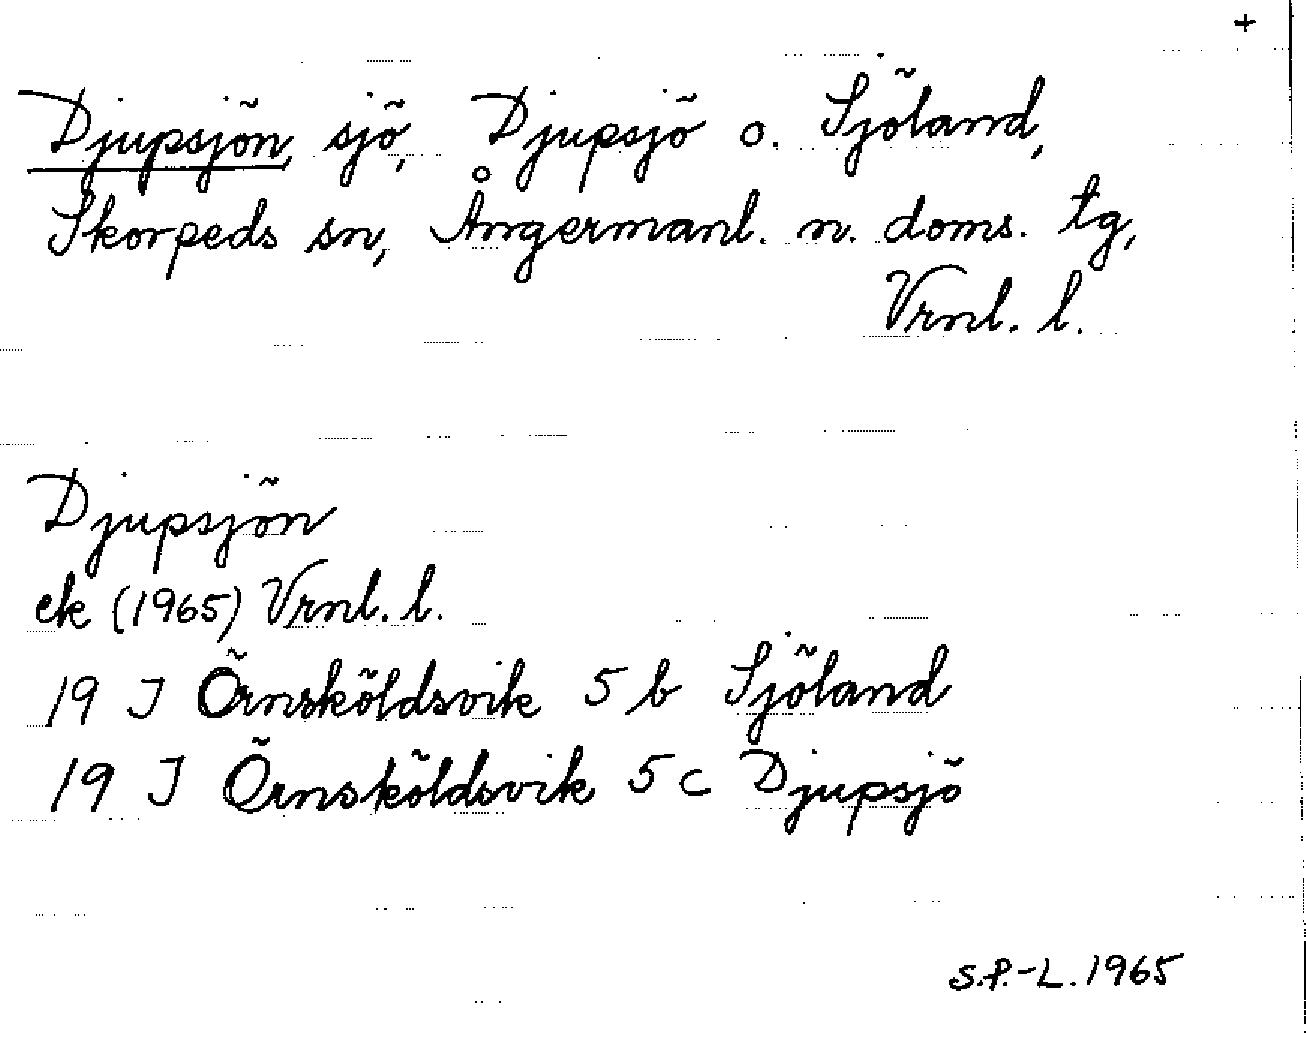 +
Djupsjön, sjö, Djupsjö o. Sjöland,
Skorpeds sn, Ångermanl. n. doms. tg,
Vrnl. l.
Djupsjön
ek (1965) Vrnl. l.
19 J Örnsköldsvik 5 b Sjöland
19 J Örnsköldsvik 5 c Djupsjö
S.P.-L. 1965